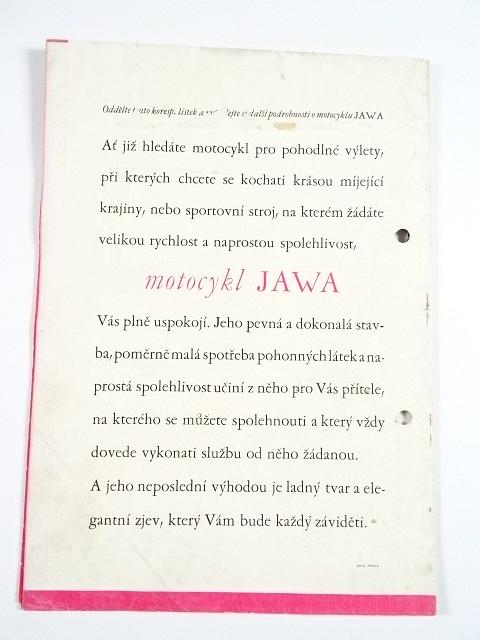 Oddělte tento koresp. lístek a další podrobnosti o motocyklu JAWA
Ať již hledáte motocykl pro pohodlné výlety,
při kterých chcete se kochati krásou míjející
krajiny, nebo sportovní stroj, na kterém žádáte
velikou rychlost a naprostou spolehlivost,
motocykl JAWA
Vás plně uspokojí. Jeho pevná a dokonalá stav-
ba, poměrně malá spotřeba pohonných látek a na-
prostá spolehlivost učiní z něho pro Vás přítele,
na kterého se můžete spolehnouti a který vždy
dovede vykonati službu od něho žádanou.
A jeho neposlední výhodou je ladný tvar a ele-
gantní zjev, který Vám bude každý záviděti.